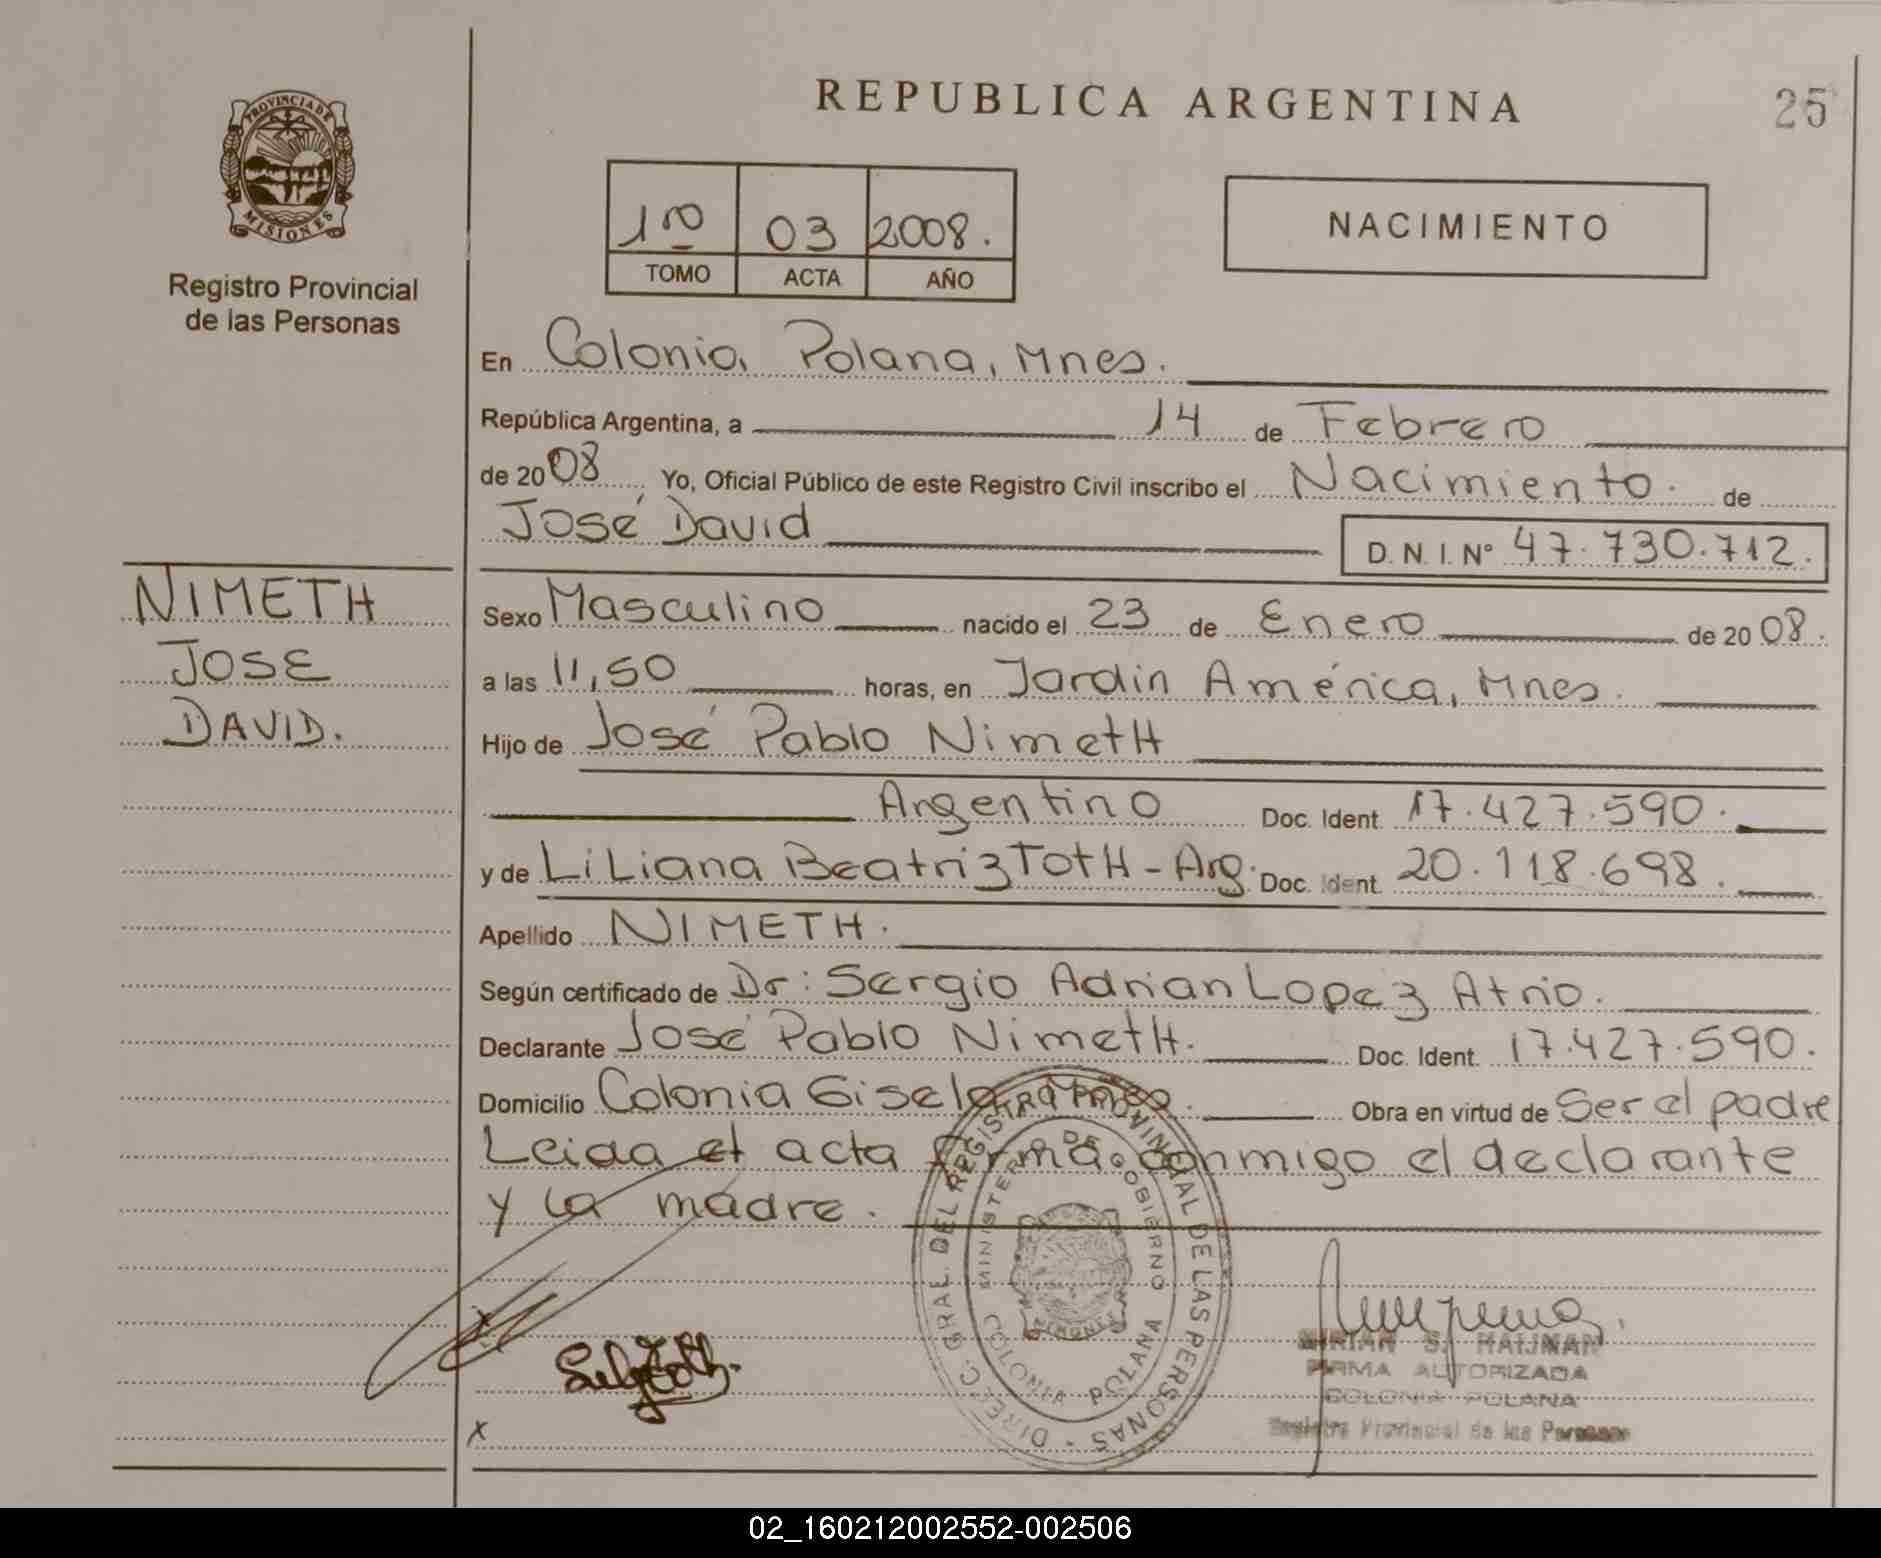 REPUBLICA ARGENTINA
25
PROVINCIA DE
MISIONES
Registro Provincial
de las Personas
1ro 03 2008.
TOMO ACTA AÑO
NACIMIENTO
En Colonia Polana, Mnes.
República Argentina, a 14 de Febrero
de 2008 Yo, Oficial Público de este Registro Civil inscribo el Nacimiento. de
José David D.N.I. Nº 47.730.712.
NIMETH
JOSE
DAVID.
Sexo Masculino nacido el 23 de Enero de 2008.
a las 11,50 horas, en Jardin América, Mnes.
Hijo de José Pablo NimetH
Argentino Doc. Ident. 17.427.590.
y de LiLiana Beatriz TotH - Arg. Doc. Ident. 20.118.698.
Apellido NIMETH.
Según certificado de Dr: Sergio Adrian Lopez Atrio.
Declarante José Pablo NimetH. Doc. Ident. 17.427.590.
Domicilio Colonia Gisela, Mnes. Obra en virtud de Ser el padre
Leida el acta firma conmigo el declarante
y la madre.
DIRECC. GRAL. DEL REGISTRO PROVINCIAL DE LAS PERSONAS -
MINISTERIO DE GOBIERNO
COLONIA POLANA
MISIONES
MIRIAN S.
FIRMA AUTORIZADA
COLONIA POLANA
Registro Provincial de las Personas
02_160212002552-002506